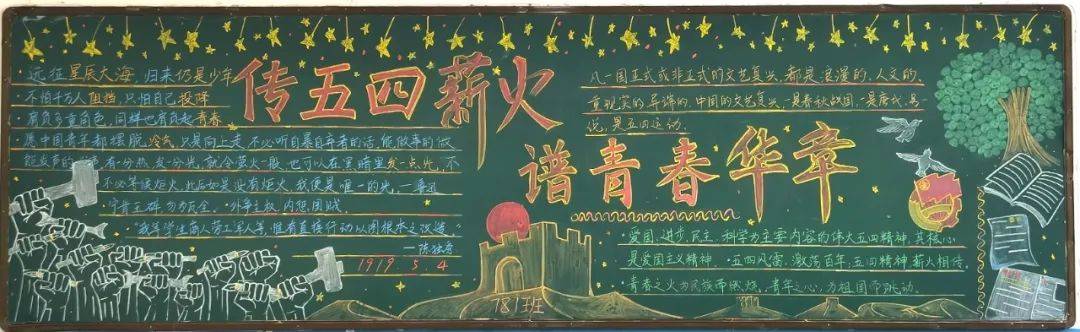 传五四薪火
谱青春华章
·远征星辰大海,归来仍是少年
·不怕千万人阻挡,只怕自己投降
·肩负多重角色,同样也肩负起青春
·愿中国青年都摆脱冷气,只是向上走,不必听自暴自弃者的话,能做事的做
能发声的发声,有一分热,发一分光,就令萤火一般,也可以在黑暗里发一点光,不
不必等候炬火,此后如竟没有炬火,我便是唯一的光。
外争主权,内惩国贼。
"我等学生商人劳工军人等,惟有直接行动以图根本之改造。"
—陈独秀
1919.5.4
凡一国正式或非正式的文艺复兴,都是浪漫的,人文的,
重现实的,异端的,中国的文艺复兴,一是春秋战国,一是唐代,再
说,是五四运动.
·爱国、进步、民主、科学为主要内容的伟大五四精神,其核心
是爱国主义精神。·五四风雷,激荡百年;五四精神,薪火相传
·青春之火为民族而燃烧,青年之心,为祖国而跳动。
781班